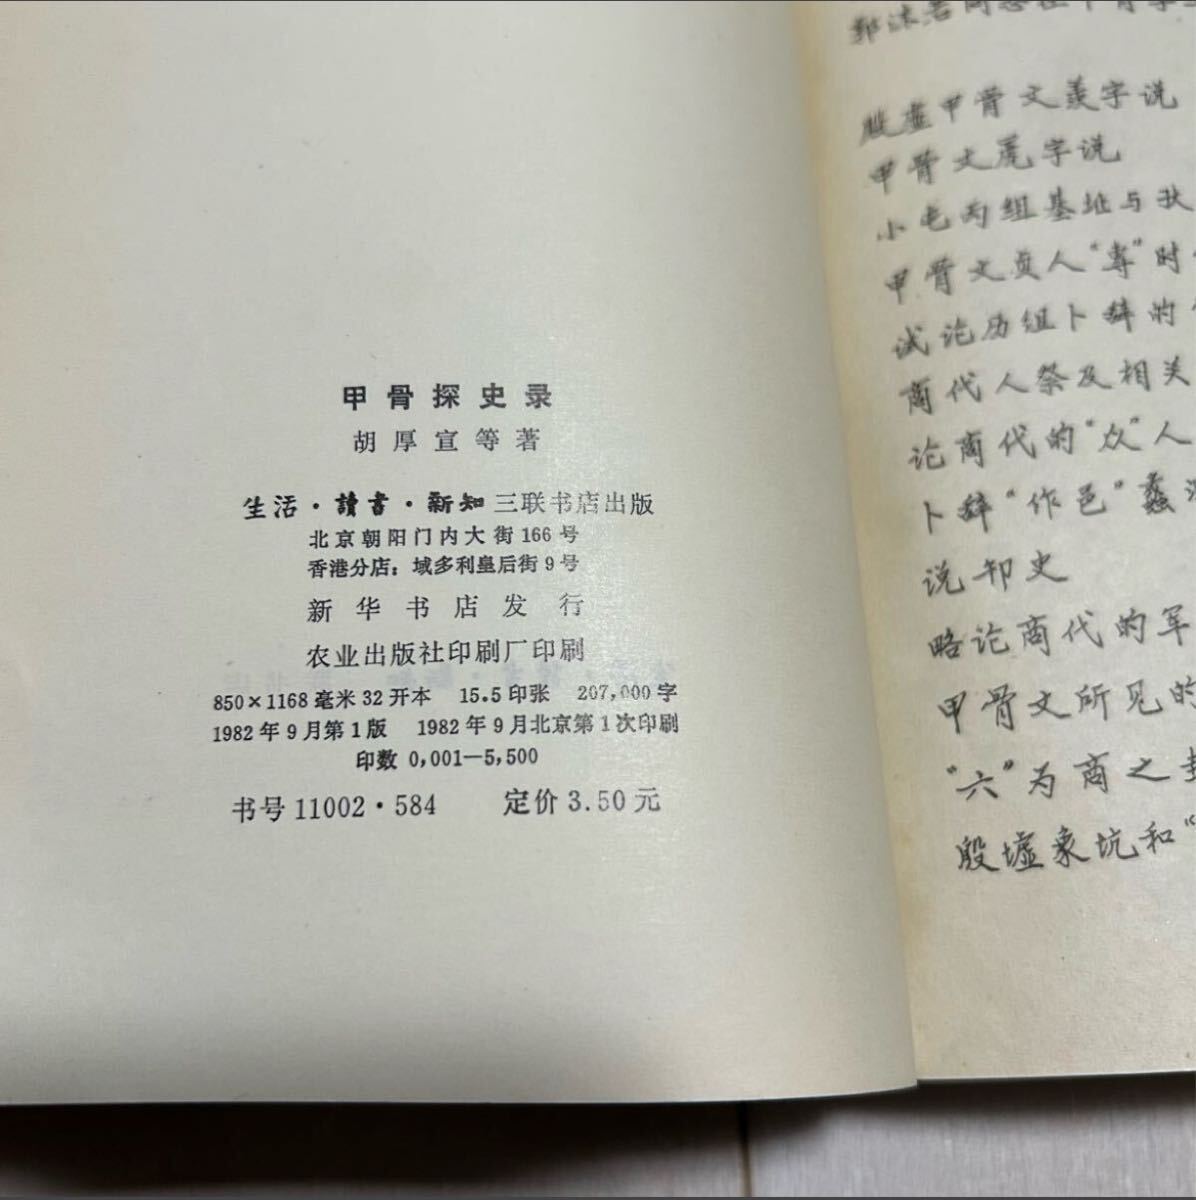 甲骨探史录
胡厚宣等著
生活·讀書·新知三联书店出版
北京朝阳门内大街166号
香港分店：域多利皇后街9号
新华书店发行
农业出版社印刷厂印刷
850×1168毫米32开本 15.5印张 207,000字
1982年9月第1版 1982年9月北京第1次印刷
印数 0,001—5,500
书号 11002·584 定价 3.50元
郭沫若同志在甲骨学
殷虚甲骨文羑字说
甲骨文 字说
小屯丙组基址与
甲骨文贞人“ ”时
试论历组卜辞的
商代人祭及相关
论商代的“众”人
卜辞“作邑”蠡
说 史
略论商代的军
甲骨文所见的
“六”为商之
殷墟象坑和“